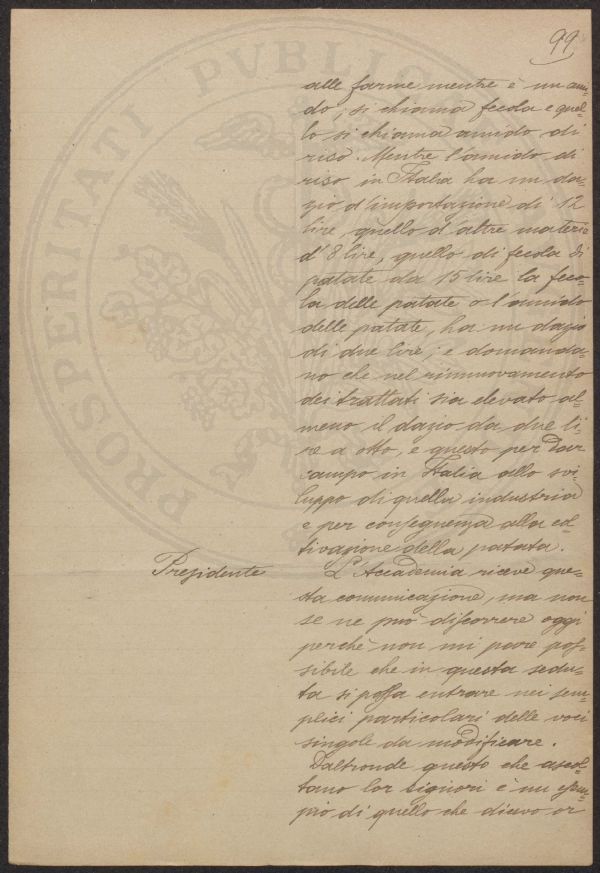 99
alle farme mentre è un ami=
do; si chiama fecola e quel=
lo si chiama amido di
riso. Mentre l'amido di
riso in Italia ha un da=
zio d'importazione di 12
lire, quello d'altre materie
d'8 lire, quello di fecola di
patate da 15 lire la feco=
la delle patate o l'amido
delle patate, ha un dazio
di due lire; e domanda=
no che nel rinnuovamento
dei trattati sia elevato al=
meno il dazio da due li=
re a otto, e questo per dar
campo in Italia allo svi=
luppo di quella industria
e per conseguenza alla col=
tivazione della patata.
Presidente L'Accademia riceve que=
sta comunicazione, ma non
se ne può discorrere oggi
perchè non mi pare pos=
sibile che in questa sedu=
ta si possa entrare nei sem=
plici particolari delle voci
singole da modificare.
Daltronde questo che ascol=
tano lor signori è un esem=
pio di quello che dicevo or
PROSPERITATI PVBLIC